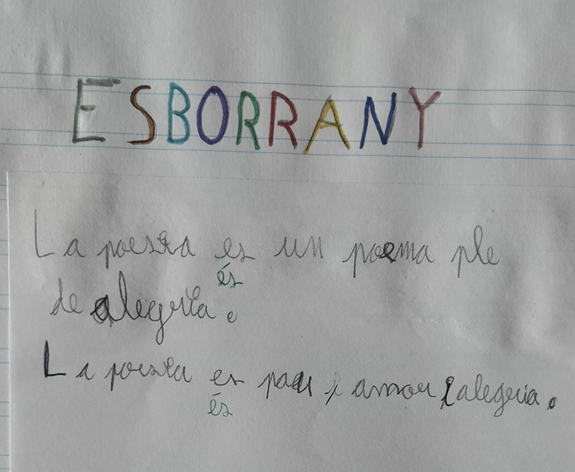 ESBORRANY
La poesia es un poema ple
és
de alegria.
La poesia es pau, amor i alegria.
és